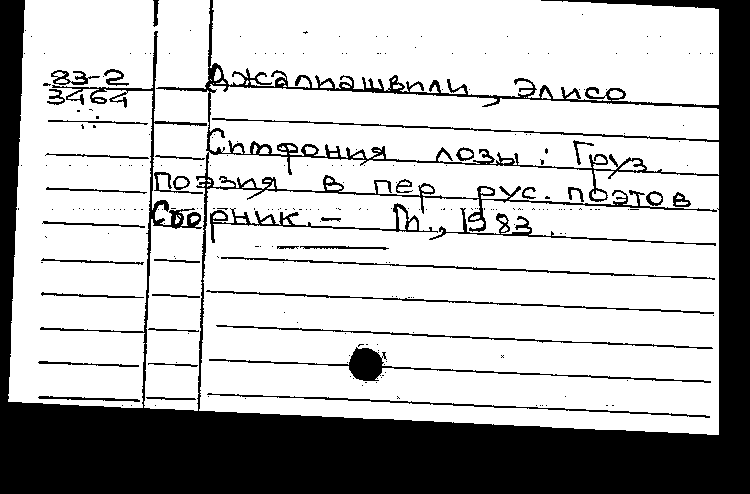 83-2
3464
Джалиашвили, Элисо
Симфония лозы: Груз.
поэзия в пер рус. поэтов
Сборник. – М., 1983.